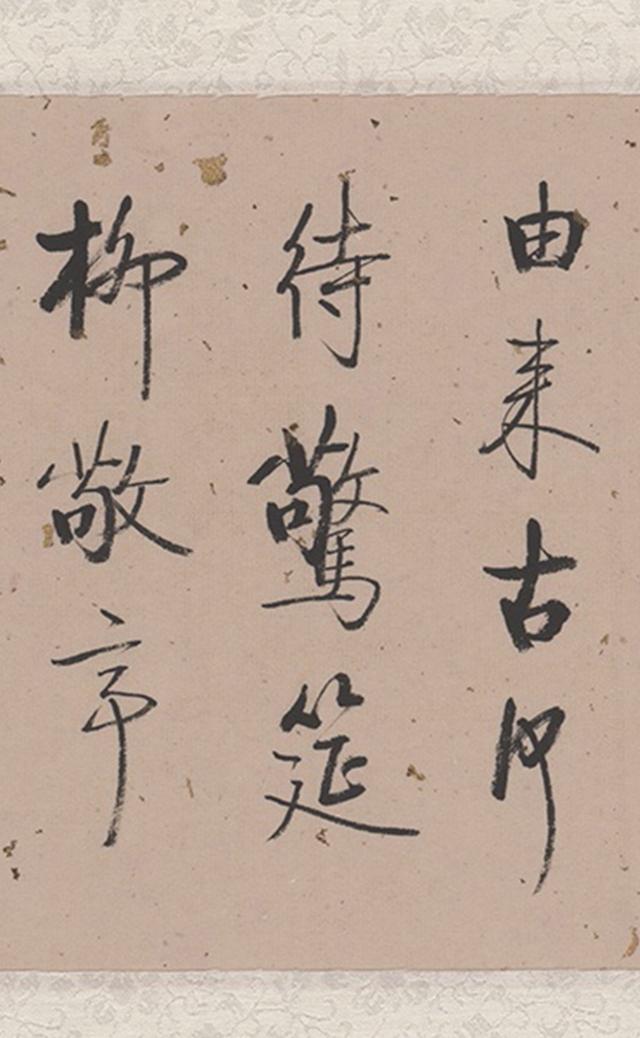 由来古
待驚筵
柳敬亭